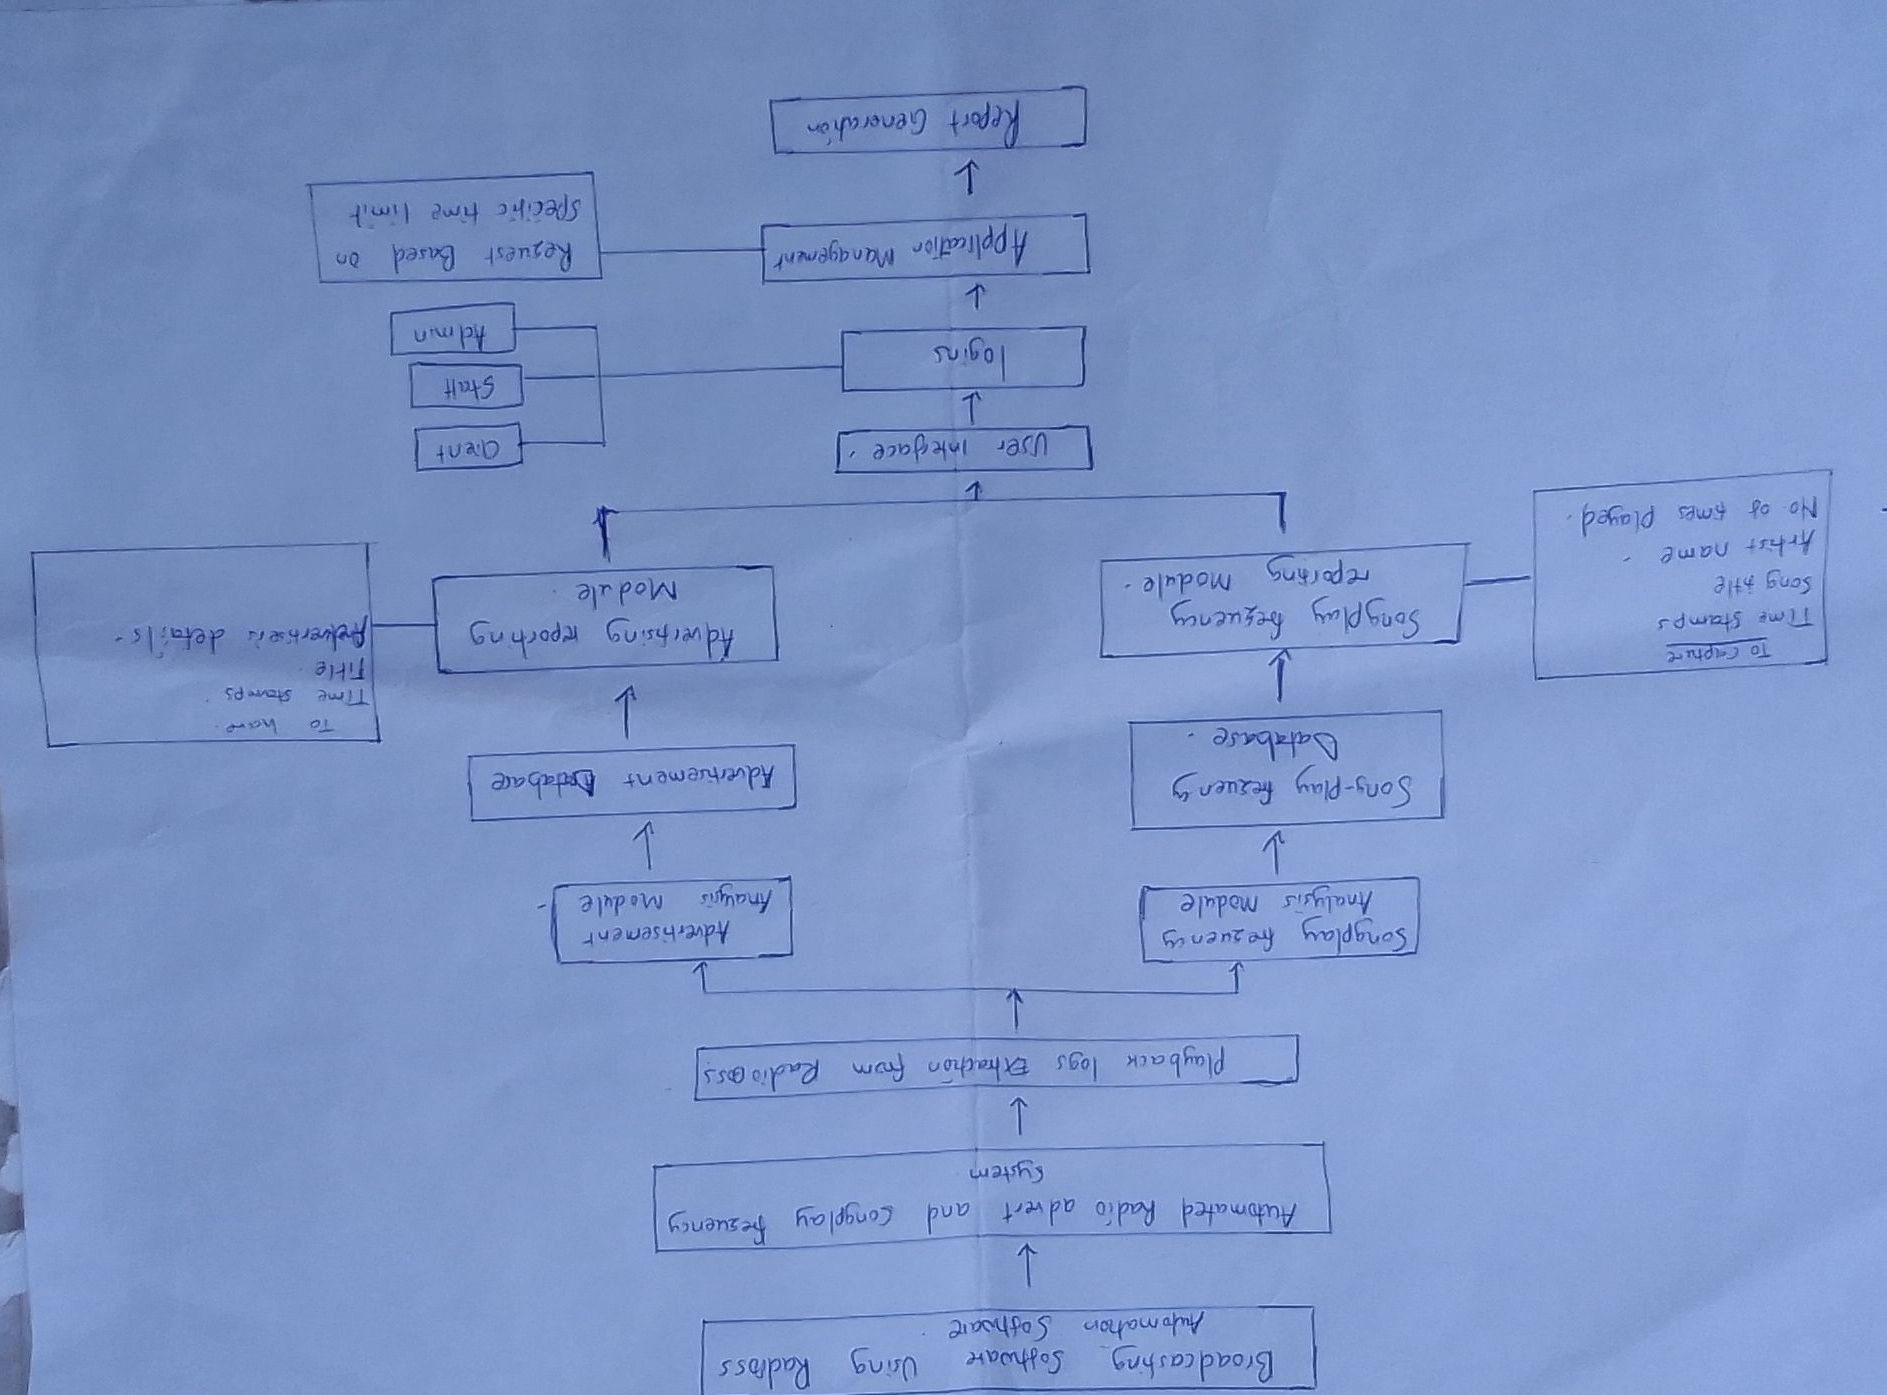 Broadcasting Software Using Radioss
Automation Software.
Automated Radio advert and songplay frequency
system
Playback logs Extraction from Radio BOSS
Songplay frequency
Analysis Module
Advertisement
Analysis Module
Song-play frequency
Database.
Advertisement Database
To have.
Time stamps
Title.
Advertiser's details.
To Capture
Time stamps
Song title
Artist name
No. of times played.
Songplay frequency
reporting Module.
Advertising reporting
Module.
User interface.
Client
Staff
logins
Admin
Application Management
Request Based on
specific time limit
Report Generation